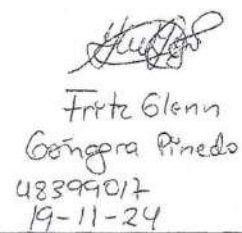 Fritz Glenn
Góngora Pinedo
48399017
19-11-24